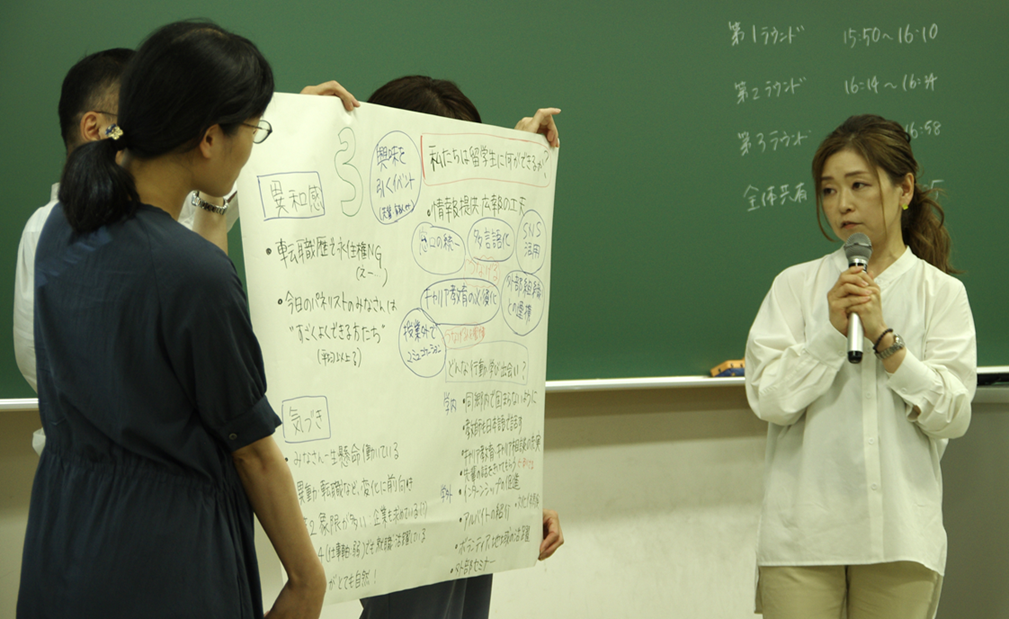 3
興味を
引くイベント
私たちは留学生に何ができるか？
異和感
・情報提供・広報の工夫
窓口の統一
多言語化
SNS
活用
・転職歴で永住権NG
キャリア教育の必修化
外部組織
との連携
・今日のパネリストのみなさんは
"すごくよくできる方たち"
授業外で
コミュニケーション
どんな行動や学び、出会い？
気づき
学内
・同郷内で固まらないように
・教職員も日本語で話す
・キャリア教育・キャリア相談の充実
・みなさん一生懸命働いている
異動や転職など、変化に前向き
学外
・インターンシップの促進
・アルバイトの紹介
・ボランティア、地域の活躍
・外部セミナー
がとても自然！
第1ラウンド 15:50〜16:10
第2ラウンド 16:14〜16:34
第3ラウンド :58
全体共有